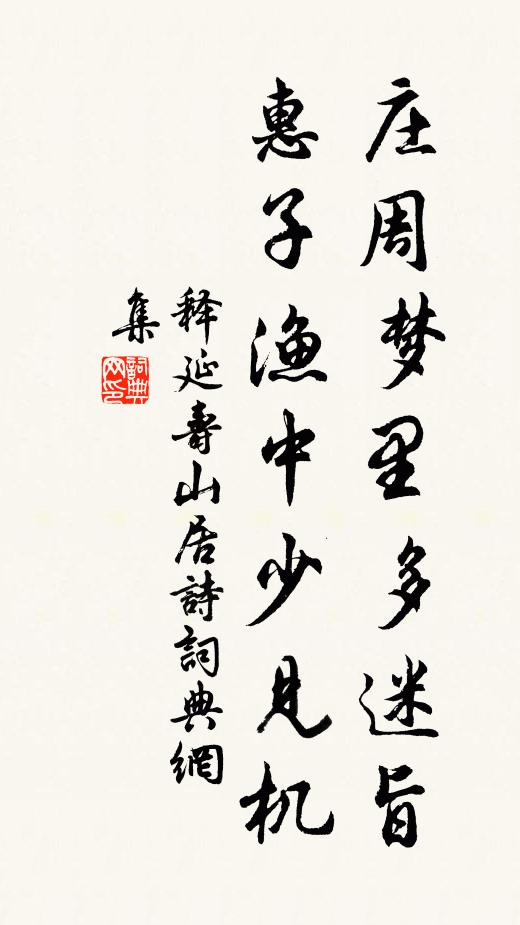 庄周梦里多迷旨
惠子渔中少见机
释延壽山居詩詞典網
集
詞典网印